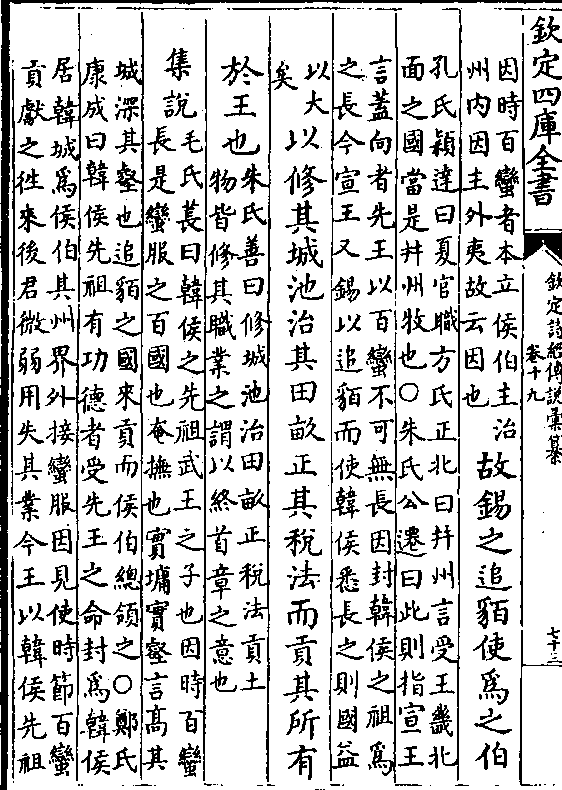 欽定四庫全書
欽定詩經傳說彙纂
卷十九
七十三
因時百蠻者本立侯伯主治
州内因主外夷故云因也
故錫之追貊使為之伯
孔氏穎達曰夏官職方氏正北曰并州言受王畿北
面之國當是并州牧也○朱氏公遷曰此則指宣王
言蓋向者先王以百蠻不可無長因封韓侯之祖為
之長今宣王又錫以追貊而使韓侯悉長之則國益
以大
矣
以修其城池治其田畝正其稅法而貢其所有
於王也
朱氏善曰修城池治田畝正稅法貢土
物皆修其職業之謂以終首章之意也
集說
毛氏萇曰韓侯之先祖武王之子也因時百蠻
長是蠻服之百國也奄撫也實墉實壑言高其
城深其壑也追貊之國來貢而侯伯總領之○鄭氏
康成曰韓侯先祖有功德者受先王之命封為韓侯
居韓城為侯伯其州界外接蠻服因見使時節百蠻
貢獻之往來後君微弱用失其業今王以韓侯先祖